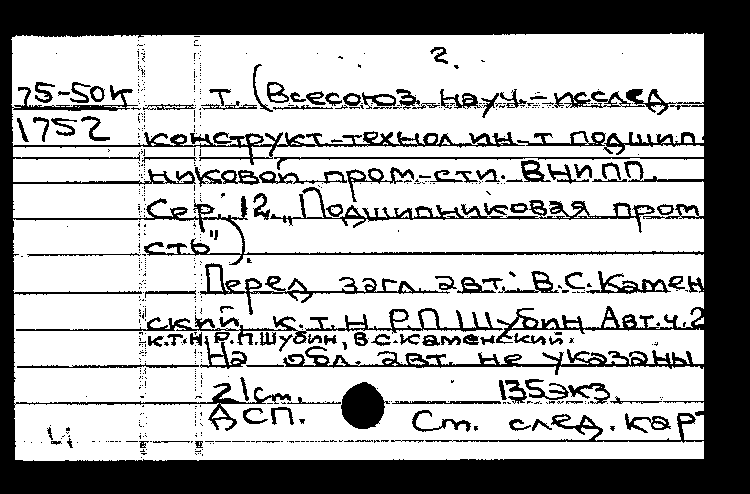 2.
75-50к т. (Всесоюз. науч.-исслед.
1752 конструкт.-технол. ин-т подшип-
никовой пром-сти. ВНИПП.
Сер. 12. „Подшипниковая пром
сть").
Перед загл. авт.: В.С.Камен
ский, к.т.н. Р.П.Шубин Авт.ч.2
к.т.н. Р.П.Шубин, В.С.Каменский.
На обл. авт. не указаны.
21ст. 135экз.
ДСП. Ст. след. кар